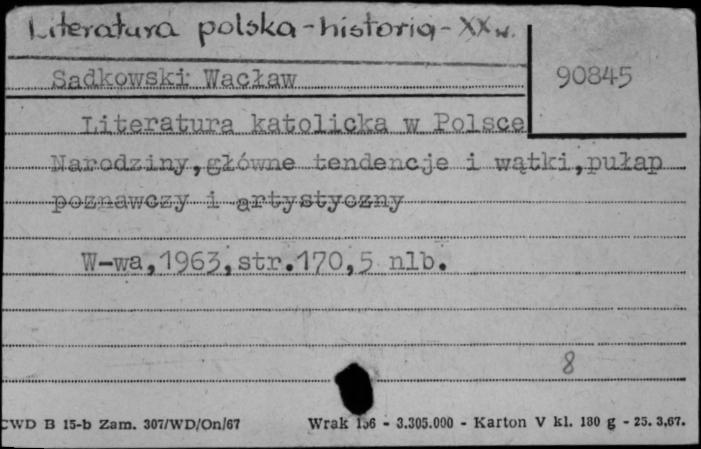 Literatura polska - historia - XX w.
Sadkowski Wacław
90845
Literatura katolicka w Polsce
Narodziny,główne tendencje i wątki,pułap
poznawczy i artystyczny
W-wa,1963,str.170,5 nlb.
8
CWD B 15-b Zam. 307/WD/On/67 Wrak 156 - 3.305.000 - Karton V kl. 180 g - 25. 3.67.